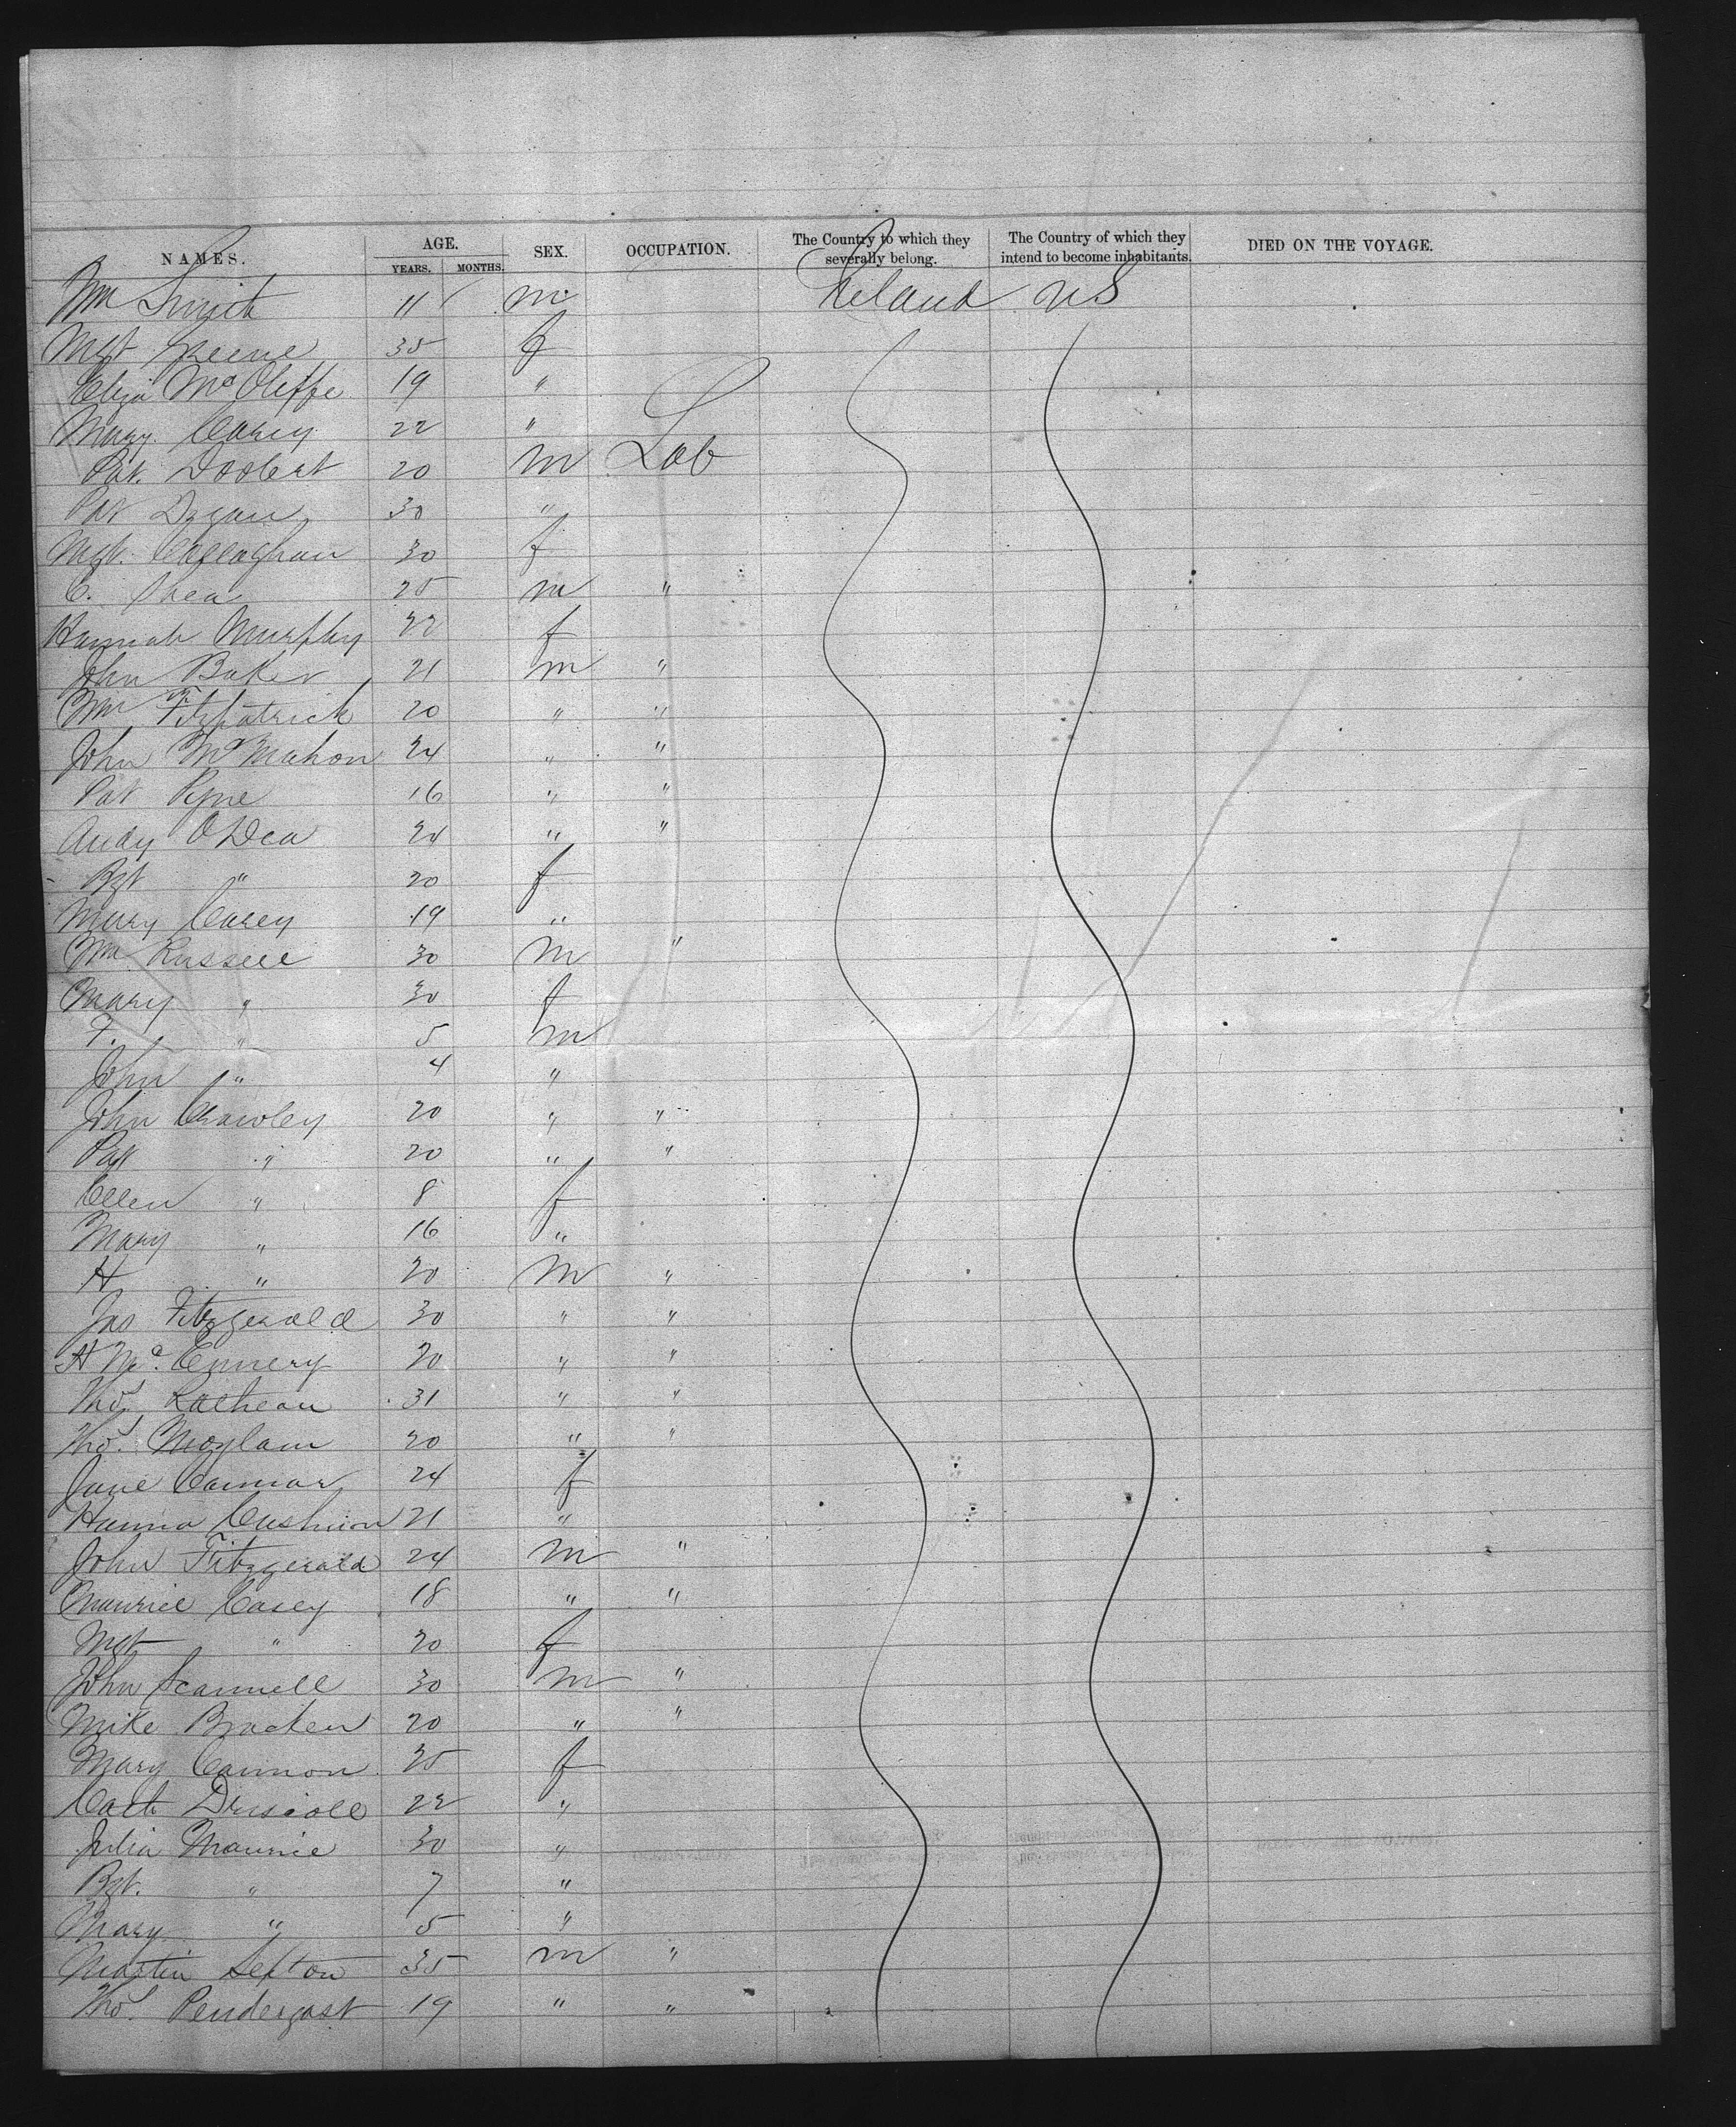 NAMES. AGE. YEARS. MONTHS. SEX. OCCUPATION. The Country to which they severally belong. The Country of which they intend to become inhabitants. DIED ON THE VOYAGE.
Wm Smith 11 m Ireland U.S
Mgt Greene 35 f
Eliza McOliffe 19 "
Mary Carey 22 "
Pat. 20 m Lab
Pat 30 "
Mgt. Callaghan 30 f
C. Shea 25 m "
Hannah Murphy 22 f
John Baker 21 m "
Wm Fitzpatrick 20 " "
John McMahon 24 " "
Pat Pyne 16 " "
Andy O'Dea 24 " "
Bgt " 20 f
Mary Carey 19 "
Wm Russell 30 m "
Mary " 30 f
F. " 5 m
John " 4 "
John Crowley 20 " "
Pat " 20 " "
Ellen " 8 f
Mary " 16 "
H " 20 m "
Jas Fitzgerald 30 " "
H Mc. Ennery 20 " "
Thos. 31 " "
Thos. Moylan 20 " "
Jane Connor 24 f
Hanna Cushion 21 "
John Fitzgerald 24 m "
Maurice Casey 18 " "
Mgt " 20 f
John Scannell 30 m "
Mike Bracken 20 " "
Mary Cannon 25 f
Cath Driscoll 22 "
Julia Maurice 30 "
Bgt. " 7 "
Mary " 5 "
Martin Sefton 35 m "
Thos. Pendergast 19 " "